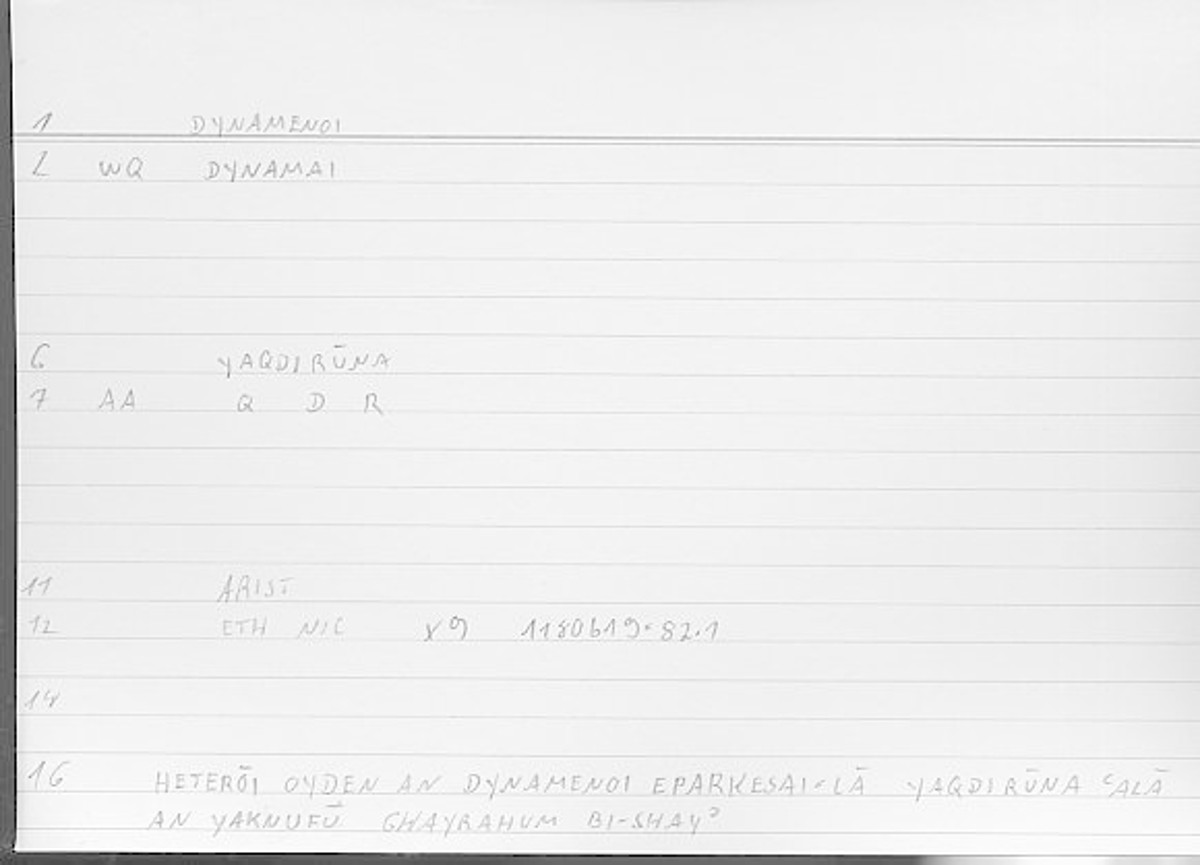 1 DYNAMENOI
2 WQ DYNAMAI
6 YAQDIRŪNA
7 AA Q D R
11 ARIST
12 ETH NIC X9 1180b19-82.1
14
16 HETERŌI OYDEN AN DYNAMENOI EPARKESAI-LĀ YAQDIRŪNA ʿALĀ
AN YAKNUFŪ GHAYRAHUM BI-SHAYʾ